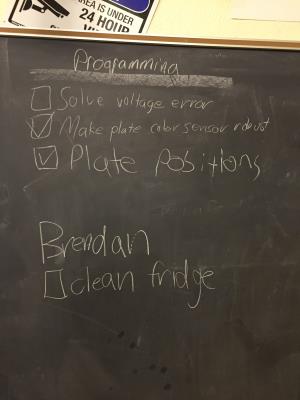 AREA IS UNDER
24 HOUR
Programming
Solve voltage error
Make plate color sensor robust
Plate Positions
Brendan
clean fridge